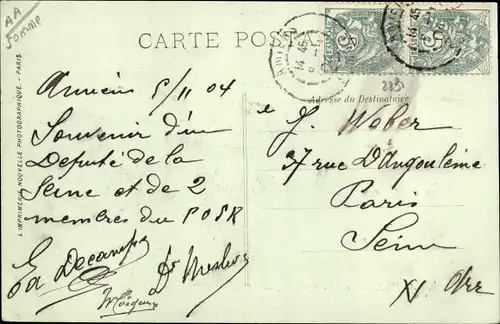 AA
Somme
CARTE POSTALE
L'IMPRIMERIE NOUVELLE PHOTOGRAPHIQUE. - PARIS.
Adresse du Destinataire
Amiens 5/11 04
Souvenir d'un
Député de la
Seine et de 2
membres du POSR
Ed Decamps
Dr Meslier
J. Weber
37 rue D'Angoulême
Paris
Seine
XI Arr